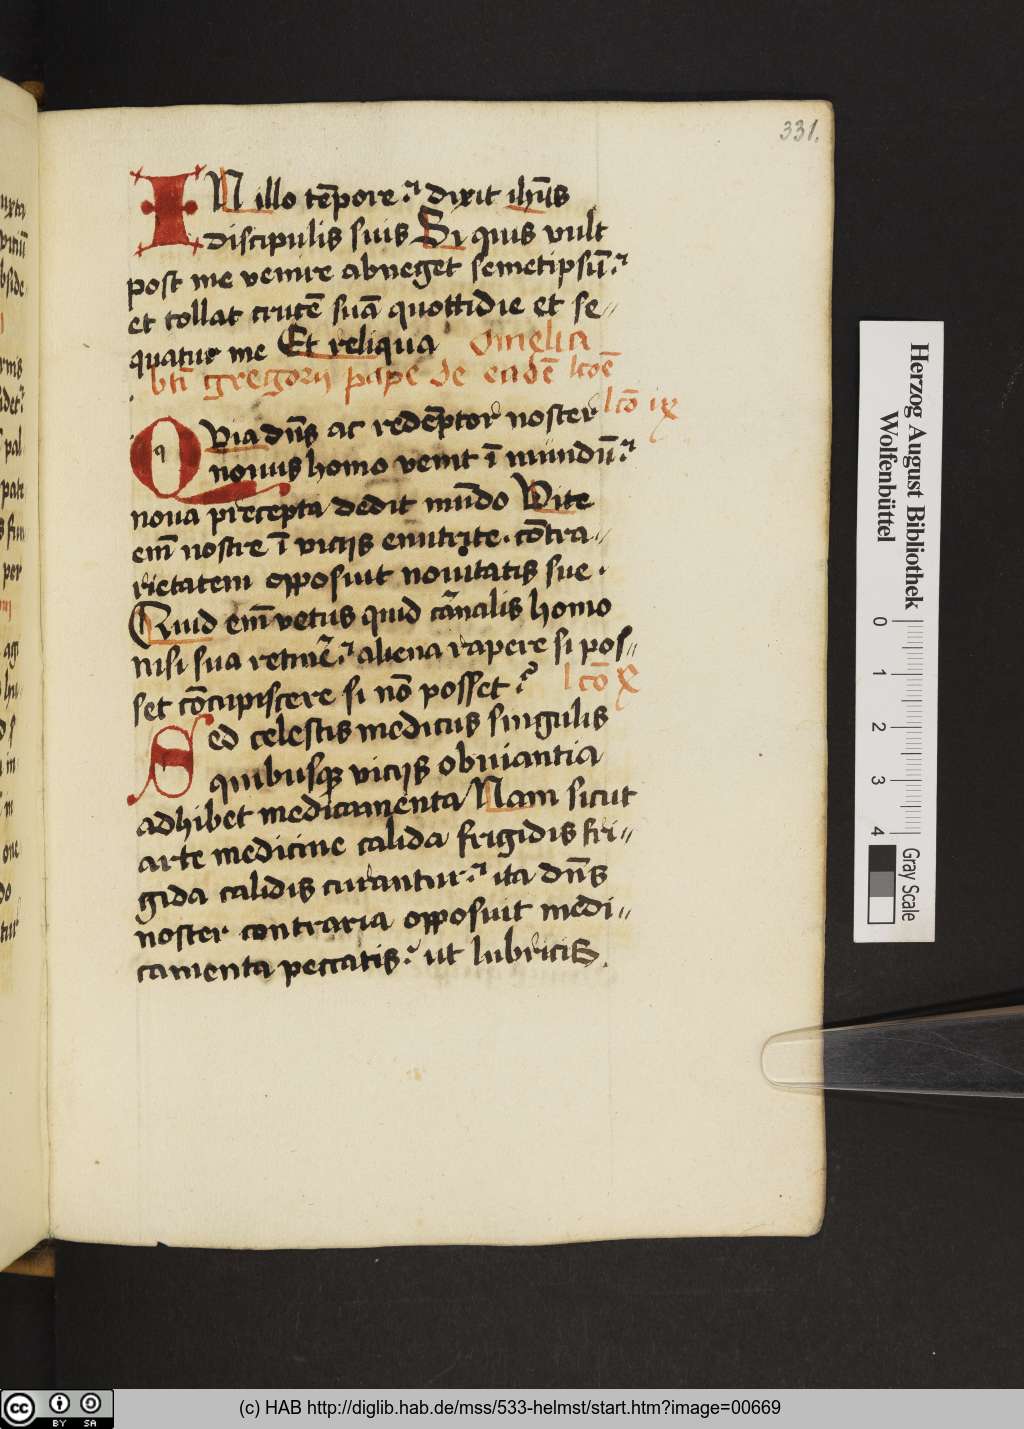 331.
IN illo te̅pore : dixit ihu̅s
discipulis suis Si quis vult
post me venire abneget semetipsu̅ :
et tollat cruce̅ sua̅ quottidie et se//
quatur me Et reliqua Omelia
bti̅ gregorij pape de eade̅ lcōe̅
lcō ix
QVia dn̅s ac rede̅ptor noster
nouus homo venit i̅ mundu̅ :
noua precepta dedit mu̅do Vite
em̅ nostre i̅ vicijs enutrite . co̅tra//
rietatem opposuit nouitatis sue .
Quid em̅ vetus quid ca̅rnalis homo
nisi sua retine̅ : aliena rapere si pos//
set co̅cupiscere si no̅ posset : lcō x
Sed celestis medicus singulis
quibusqꝫ vicijs obuiantia
adhibet medicamenta Nam sicut
arte medicine calida frigidis fri//
gida calidis curantur : ita dn̅s
noster contraria opposuit medi//
camenta peccatis : ut lubricis .
Herzog August Bibliothek
Wolfenbüttel
0 1 2 3 4
Gray Scale
cc BY SA
(c) HAB http://diglib.hab.de/mss/533-helmst/start.htm?image=00669